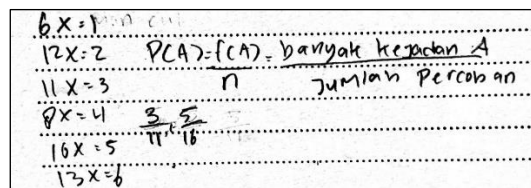 6x = 1
12x = 2 P(A) = f(A) = banyak kejadian A
n Jumlah Percoban
11x = 3
8x = 4 3/11, 5/16
16x = 5
13x = 6